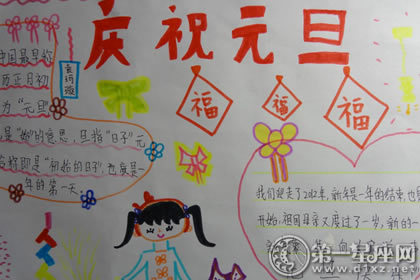 庆祝元旦
中国最早称
历正月初
为“元旦
是“始”的意思，旦指“日子”元
即是“初始的日子”，也就是一
年的第一天
福
福
福
我们迎来了2012年，新年是一年的结束，也是
开始，祖国母亲又度过了一岁，新的一
第一星座网
www.d1xz.net